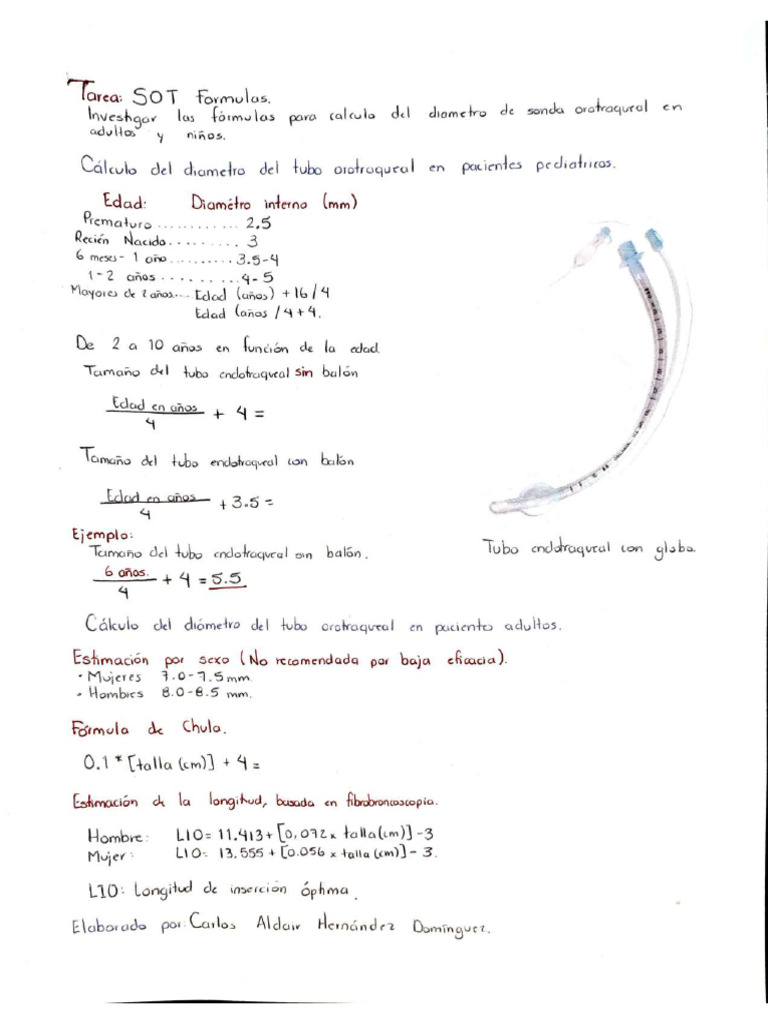 Tarea: SOT Formulas.
Investigar las fórmulas para calculo del diametro de sonda orotraqueal en
adultos y niños.
Cálculo del diametro del tubo orotraqueal en pacientes pediatricos.
Edad: Diamétro interno (mm)
Prematuro ............ 2.5
Recién Nacido......... 3
6 meses - 1 año .......... 3.5-4
1-2 años ......... 4-5
Mayores de 2 años.... Edad (años) + 16/4
Edad (años /4 + 4.
De 2 a 10 años en función de la edad.
Tamaño del tubo endotraqueal sin balón
Edad en años
4
+ 4 =
Tamaño del tubo endotraqueal con balón
Edad en años
4
+ 3.5 =
Ejemplo:
Tamaño del tubo endotraqueal sin balón.
6 años.
4
+ 4 = 5.5
Tubo endotraqueal con globo.
Cálculo del diámetro del tubo orotraqueal en paciento adultos.
Estimación por sexo (No recomendada por baja eficacia).
• Mujeres 7.0-7.5 mm.
• Hombres 8.0-8.5 mm.
Fórmula de Chula.
0.1 * [talla (cm)] + 4 =
Estimación de la longitud, basada en fibrobroncoscopia.
Hombre: LIO= 11.413+ [0,072 x talla(cm)] -3
Mujer: LIO= 13.555 + [0.056 x talla (cm)] - 3.
LIO: Longitud de inserción óptima.
Elaborado por: Carlos Aldair Hernández Domínguez.